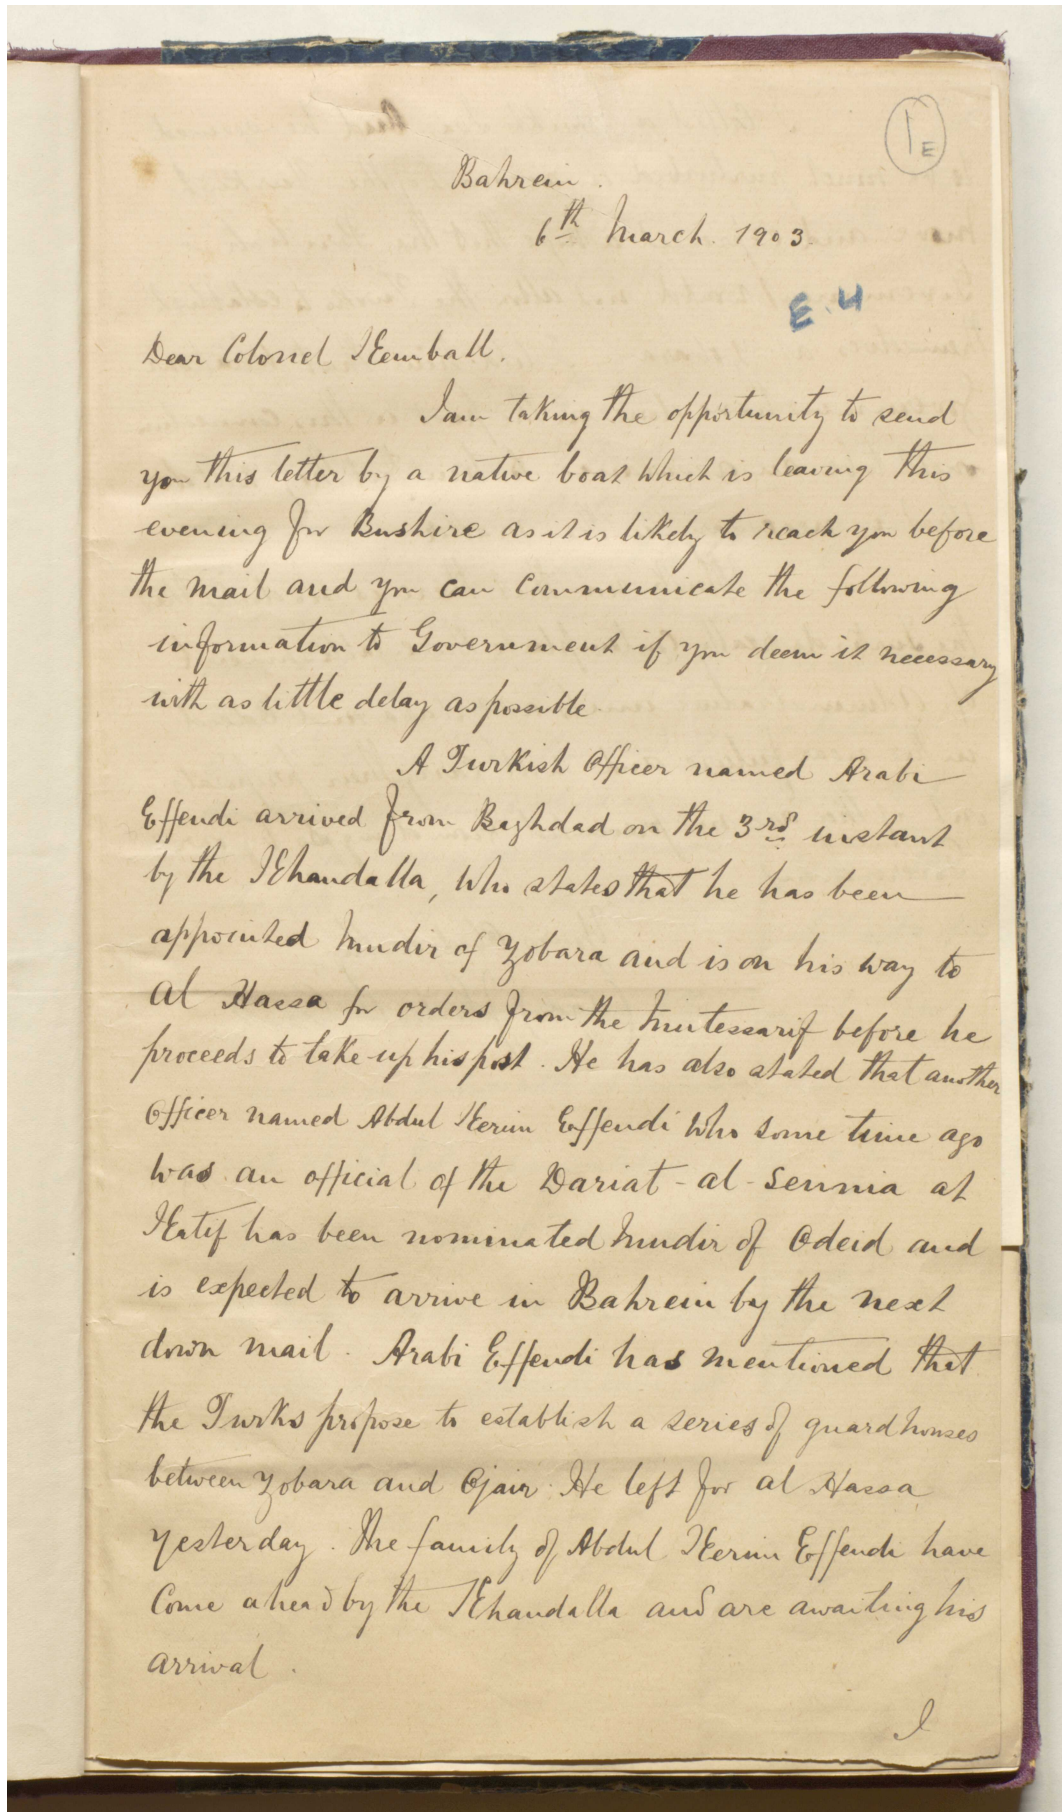 1E
Bahrein.
6th March. 1903.
E.4
Dear Colonel Kemball.
I am taking the opportunity to send
you this letter by a native boat which is leaving this
evening for Bushire as it is likely to reach you before
the mail and you can communicate the following
information to Government if you deem it necessary
with as little delay as possible.
A Turkish Officer named Arabi
Effendi arrived from Baghdad on the 3rd instant
by the Khandalla, who states that he has been
appointed Mudir of Zobara and is on his way to
Al Hassa for orders from the Mutessarif before he
proceeds to take up his post. He has also stated that another
Officer named Abdul Kerim Effendi who some time ago
was an official of the Dariat-al-Sennia at
Katif has been nominated Mudir of Odeid and
is expected to arrive in Bahrein by the next
down mail. Arabi Effendi has mentioned that
the Turks propose to establish a series of guard houses
between Zobara and Ojair. He left for al Hassa
yesterday. The family of Abdul Kerim Effendi have
come ahead by the Khandalla and are awaiting his
arrival.
I